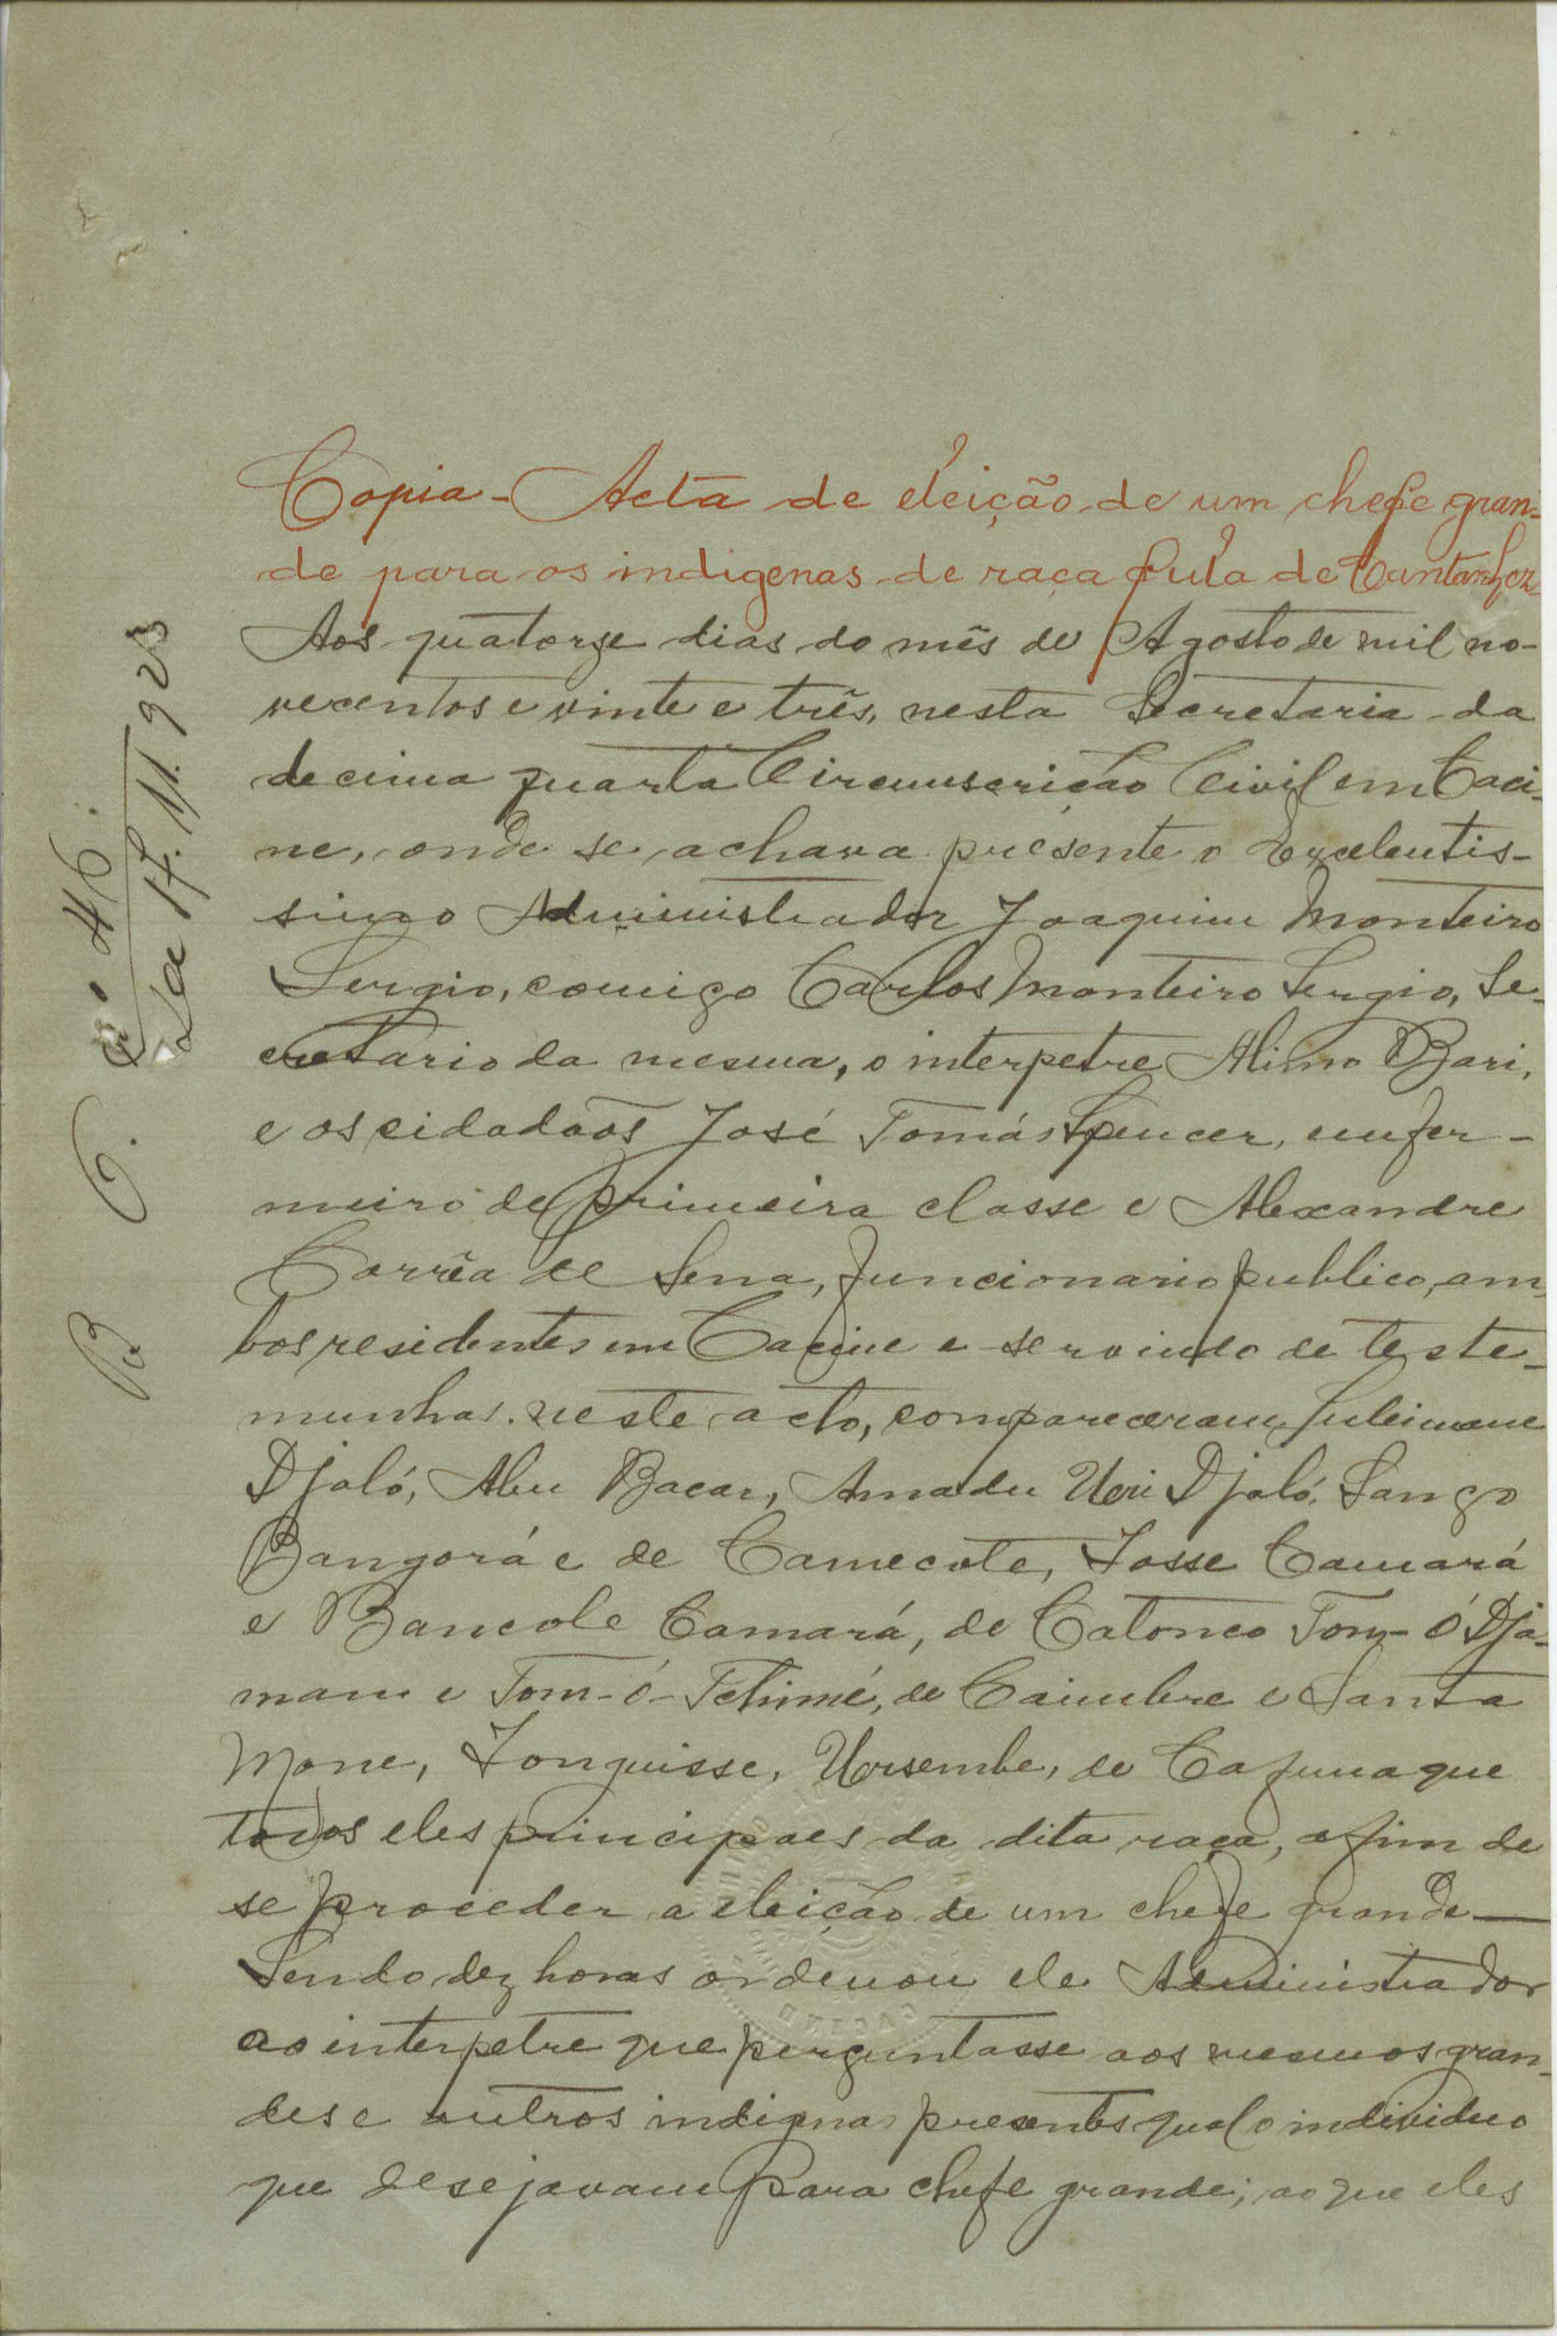 Copia - Acta de eleição de um chefe gran-
de para os indigenas de raça fula de Cantanhez
Aos quatorze dias do mês de Agosto de mil no-
vecentos e vinte e três, nesta Secretaria da
decima quarta Circunscrição Civil em Caci-
ne, onde se achava presente o Excelentis-
simo Administrador Joaquim Monteiro
Sergio, comigo Carlos Monteiro Sergio, Se-
cretario da mesma, o interpetre Alimo Bari,
e os cidadaos José Tomás Spencer, enfer-
meiro de primeira classe e Alexandre
Corrêa de Sena, funcionario publico, am-
bos residentes em Cacine e servindo de teste-
munhas neste acto, compareceram Suleimane
Djaló, Abu Bacar, Amadu Uri Djaló, Sango
Bangorá e de Camecote, Fosse Camará
e Bancole Camará, de Catonco Tom-Ó Dja-
mam e Tom-ó-Tchimé, de Caiumbre e Santa
Mone, Fonquisse, Uorsembe, de Cafuna que
todos eles principaes da dita raça, afim de
se proceder a eleição de um chefe grande—
Sendo dez horas ordenou ele Administrador
ao interpetre que perguntasse aos mesmos gran-
des e outros indignas presentes qual o individuo
que desejavam para chefe grande; ao que eles
Nº 46.
17.11.923